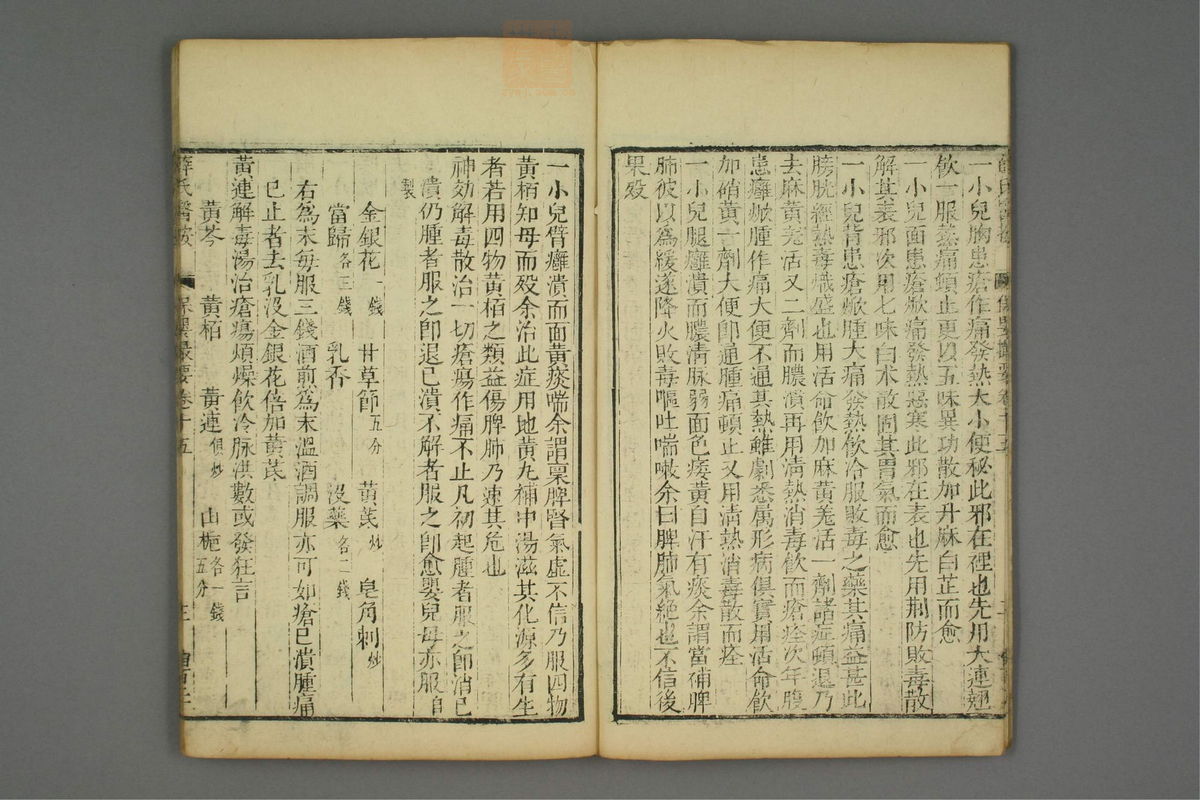 一小兒胸患瘡作痛發熱大小便秘此邪在裡也先用大連翹
飲一服熱痛頓止更以五味異功散加升麻白芷而愈
一小兒面患瘡焮痛發熱惡寒此邪在表也先用荊防敗毒散
解其表邪次用七味白术散固其胃氣而愈
一小兒背患瘡焮腫大痛發熱飲冷服敗毒之藥其痛益甚此
膀胱經熱毒熾盛也用活命飲加麻黃羌活一劑諸症頓退乃
去麻黃羌活又二劑而膿潰再用清熱消毒飲而瘡痊次年腹
患癰焮腫作痛大便不通其熱雖劇悉属形病俱實用活命飲
加硝黃一劑大便即通腫痛頓止又用清熱消毒散而痊
一小兒腿癰潰而膿清脉弱面色痿黃自汗有痰余謂當補脾
肺彼以為緩遂降火敗毒嘔吐喘嗽余曰脾肺氣絶也不信後
果歿
一小兒臂癰潰而面黃痰喘余謂禀脾腎氣虛不信乃服四物
黃栢知母而歿余治此症用地黃丸補中湯滋其化源多有生
者若用四物黃栢之類益傷脾肺乃速其危也
神効解毒散治一切瘡瘍作痛不止凡初起腫者服之即消已
潰仍腫者服之即退已潰不解者服之即愈嬰兒母亦服自
製
金銀花一錢 甘草節五分 黃芪炒 皂角刺炒
當歸各三錢 乳香 沒藥各二錢
右為末每服三錢酒煎為末溫酒調服亦可如瘡已潰腫痛
已止者去乳沒金銀花倍加黃芪
黃連解毒湯治瘡瘍煩燥飲冷脉洪數或發狂言
黃芩 黃栢 黃連俱炒 山梔各一錢五分
薛氏醫按 保嬰撮要卷十五